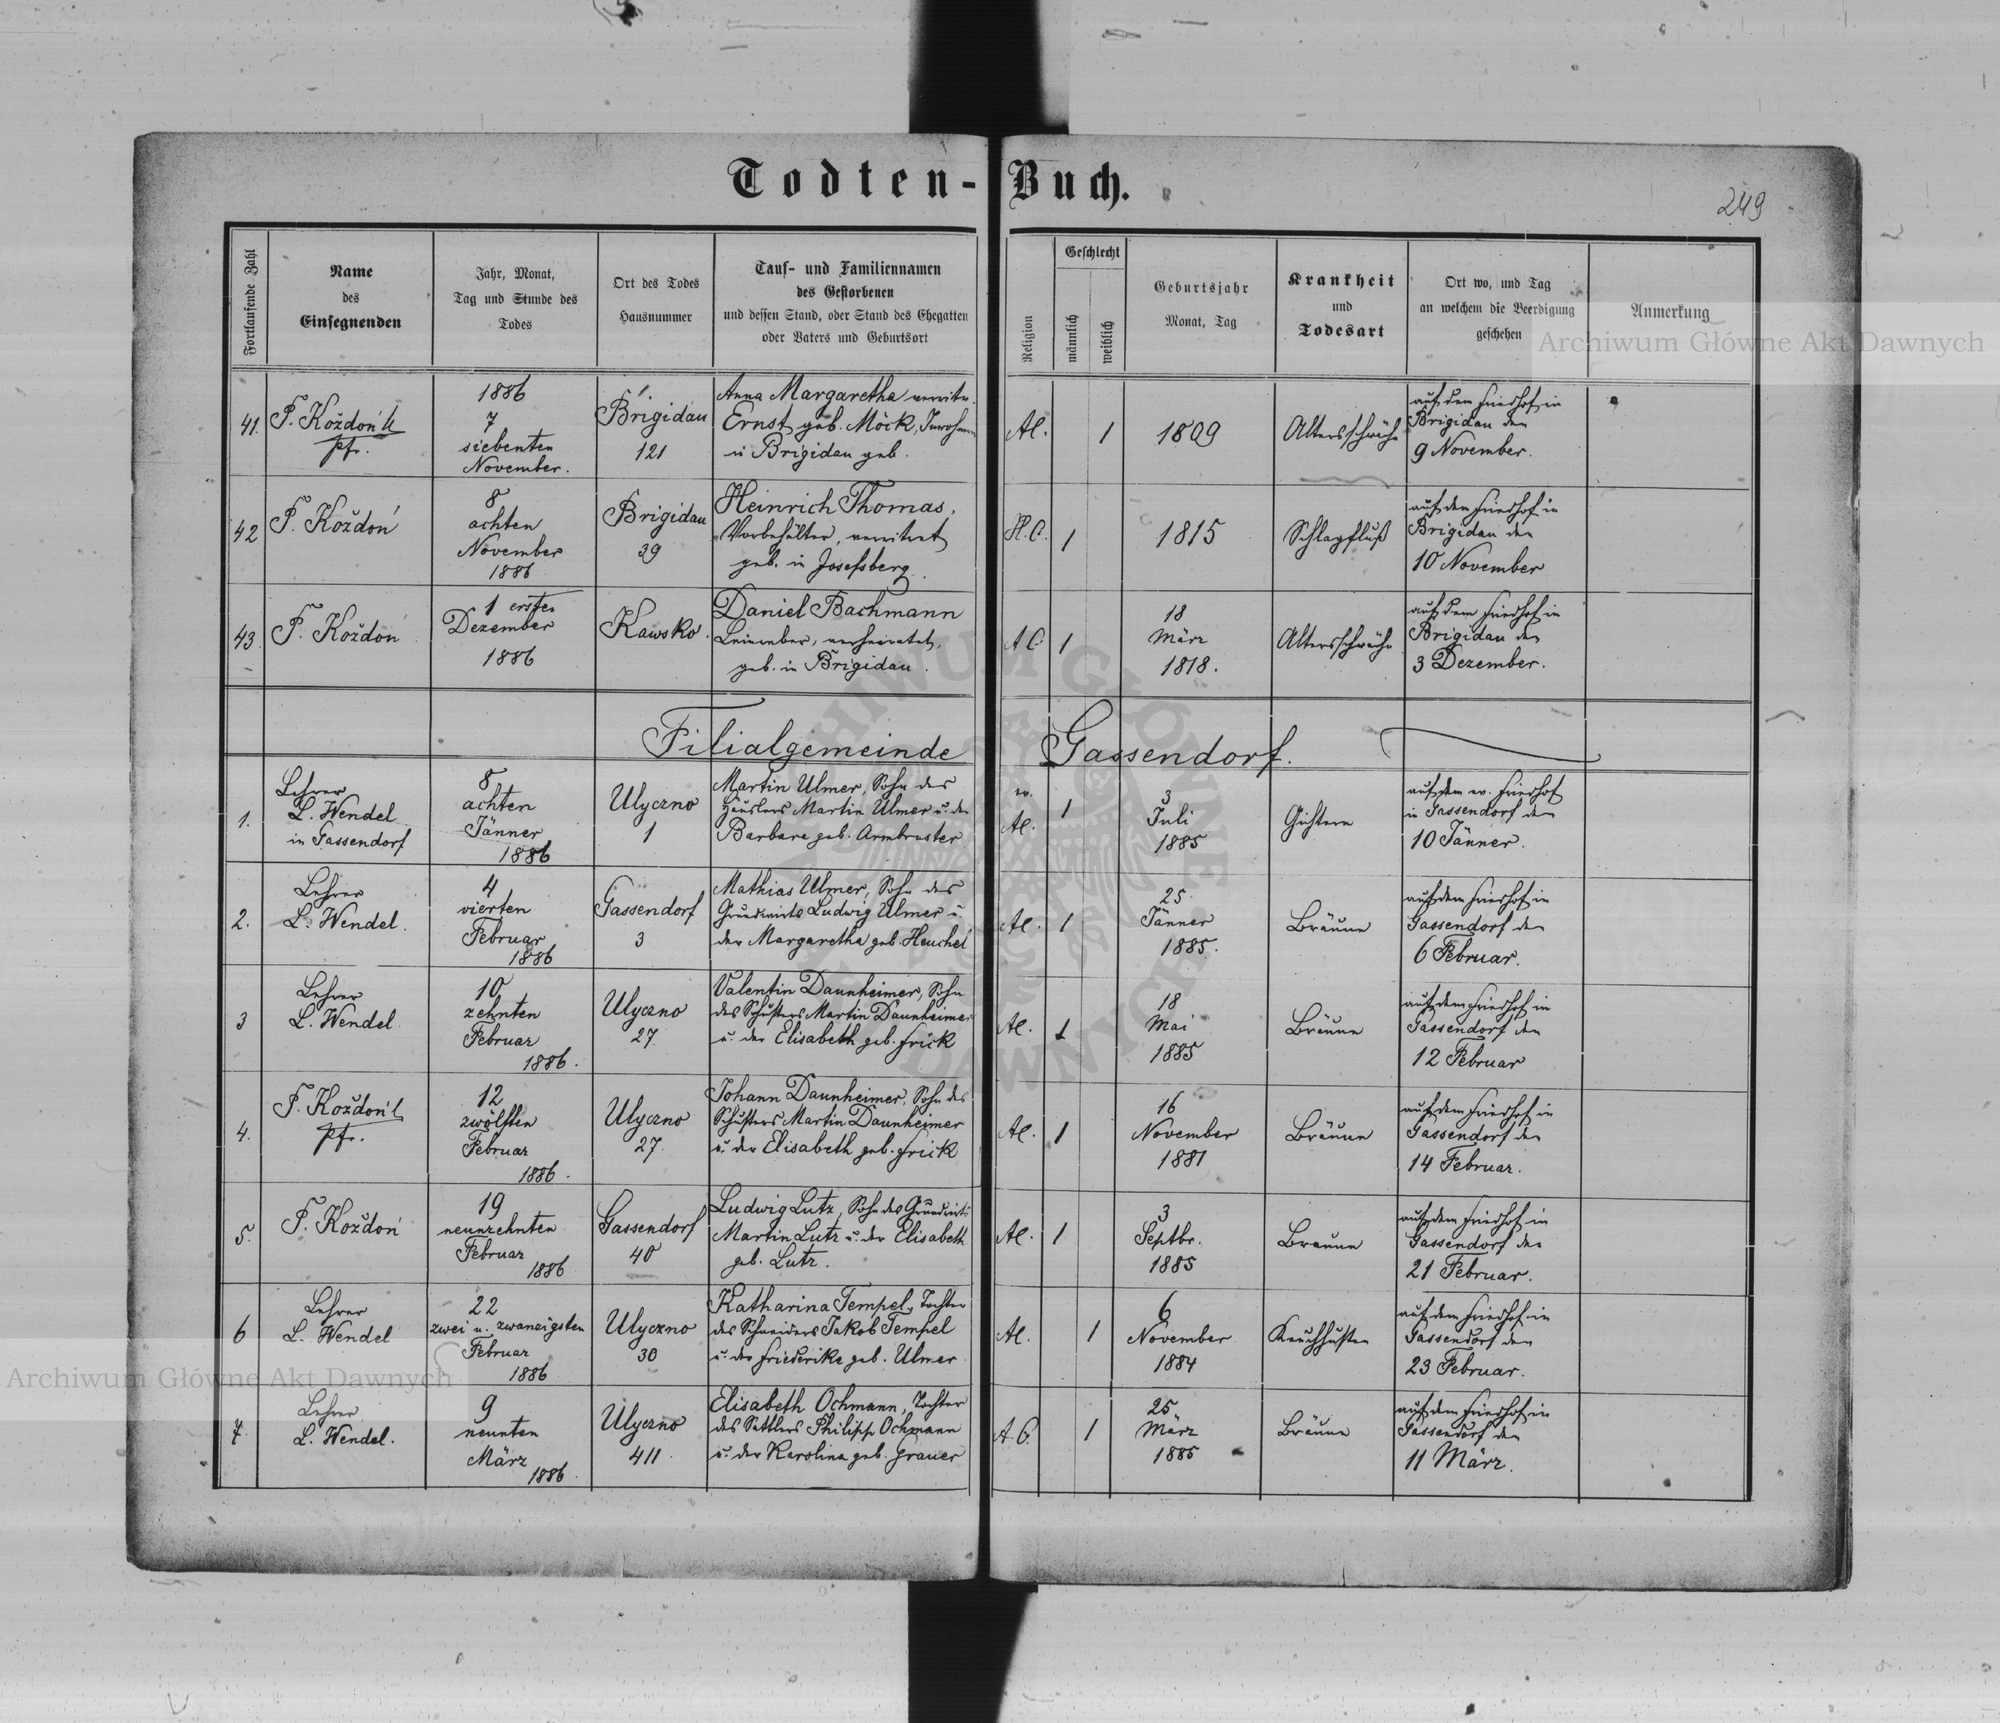 Todten-Buch.
249
Fortlaufende Zahl
Name
des
Einsegnenden
Jahr, Monat,
Tag und Stunde des
Todes
Ort des Todes
Hausnummer
Tauf- und Familiennamen
des Gestorbenen
und dessen Stand, oder Stand des Ehegatten
oder Vaters und Geburtsort
Religion
Geschlecht
männlich
weiblich
Geburtsjahr
Monat, Tag
Krankheit
und
Todesart
Ort wo, und Tag
an welchem die Beerdigung
geschehen
Anmerkung
41.
F. Koždoń
pfr.
1886
7
siebenten
November.
Brigidau
121
Anna Margaretha verwitw.
Ernst geb. Möck,
in Brigidau geb.
AC.
1
1809
Altersschwäche
auf dem Friedhof in
Brigidau den
9 November.
42
F. Koždoń
8
achten
November
1886
Brigidau
39
Heinrich Thomas,
Vorbehälter, verwitwet
geb. in Josefsberg.
H.C.
1
1815
Schlagfluß
auf dem Friedhof in
Brigidau den
10 November
43.
F. Koždoń
1 ersten
Dezember
1886
Kawsko.
Daniel Bachmann
Leinweber, verheiratet,
geb. in Brigidau.
AC
1
18
März
1818.
Altersschwäche
auf dem Friedhof in
Brigidau den
3 Dezember.
Filialgemeinde Gassendorf.
1.
Lehrer
L. Wendel
in Gassendorf
8
achten
Jänner
1886
Ulyczno
1
Martin Ulmer, Sohn des
Häuslers Martin Ulmer u. der
Barbara geb. Armbruster
ev.
AC.
1
3
Juli
1885
auf dem ev. Friedhof
in Gassendorf den
10 Jänner.
2.
Lehrer
L. Wendel.
4
vierten
Februar
1886
Gassendorf
3
Mathias Ulmer, Sohn des
Grundwirts Ludwig Ulmer u.
der Margaretha geb. Heuchel
AC.
1
25.
Jänner
1885.
Bräune
auf dem Friedhof in
Gassendorf den
6 Februar.
3
Lehrer
L. Wendel.
10
zehnten
Februar
1886.
Ulyczno
27.
Valentin Daunheimer, Sohn
des Schusters Martin Daunheimer
u. der Elisabeth geb. Frick
AC.
1
18
Mai
1885
Bräune
auf dem Friedhof in
Gassendorf den
12 Februar
4.
F. Koždoń
pfr.
12
zwölften
Februar
1886.
Ulyczno
27.
Johann Daunheimer, Sohn des
Schusters Martin Daunheimer
u. der Elisabeth geb. Frick
AC.
1
16
November
1881
Bräune
auf dem Friedhof in
Gassendorf den
14 Februar.
5.
F. Koždoń
19
neunzehnten
Februar
1886
Gassendorf
40
Ludwig Lutz, Sohn des Grundwirts
Martin Lutz u. der Elisabeth
geb. Lutz.
AC.
1
3
Septbr.
1885
Bräune
auf dem Friedhof in
Gassendorf den
21 Februar.
6
Lehrer
L. Wendel
22
zwei u. zwanzigsten
Februar
1886
Ulyczno
30
Katharina Tempel, Tochter
des Schneiders Jakob Tempel
u. der Friederike geb. Ulmer
AC.
1
6
November
1884
Keuchhusten
auf dem Friedhof in
Gassendorf den
23 Februar.
7.
Lehrer
L. Wendel.
9
neunten
März
1886.
Ulyczno
411
Elisabeth Ochmann, Tochter
des Sattlers Philipp Ochmann
u. der Karolina geb. Grauer
A.C.
1
25
März
1885
Bräune
auf dem Friedhof in
Gassendorf den
11 März.
Archiwum Główne Akt Dawnych
Archiwum Główne Akt Dawnych